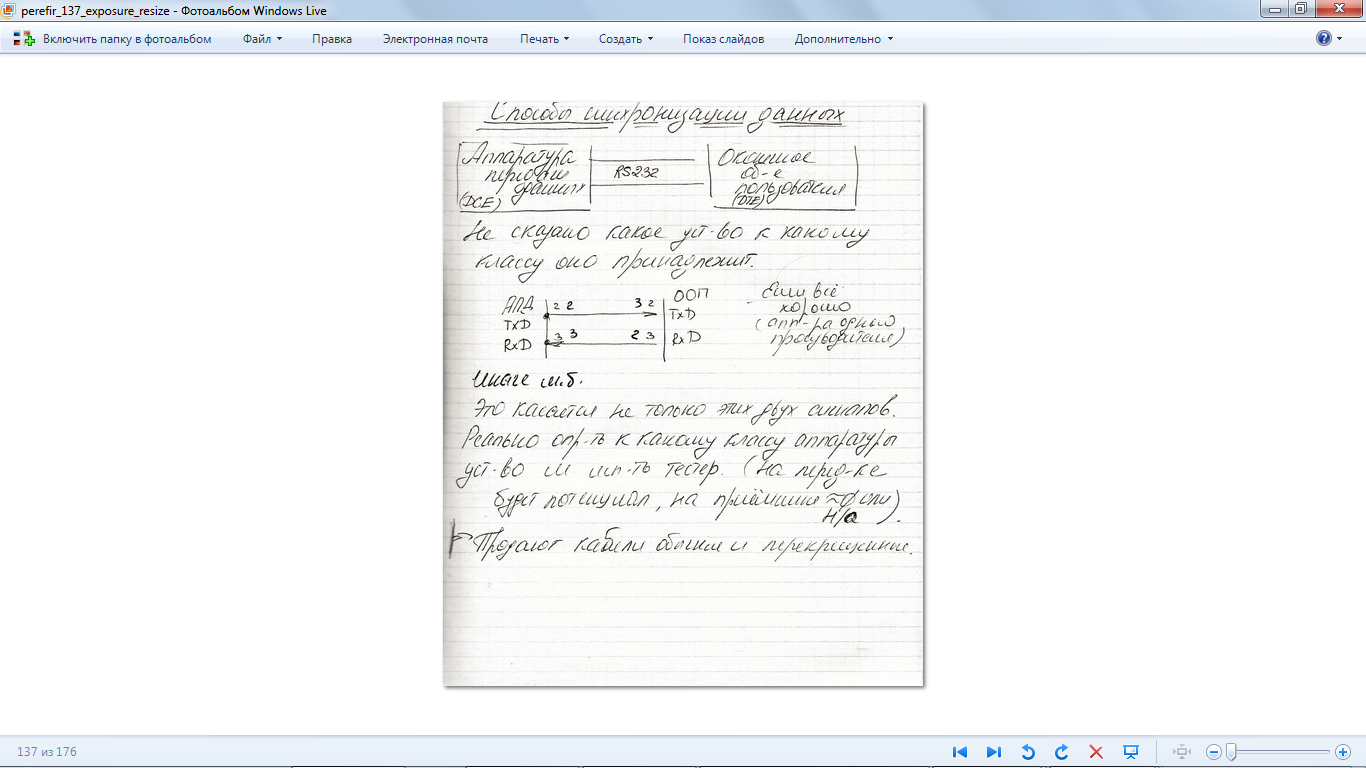 perefir_137_exposure_resize - Фотоальбом Windows Live
Включить папку в фотоальбом Файл Правка Электронная почта Печать Создать Показ слайдов Дополнительно
Способы синхронизации данных
Аппаратура передачи данных (DCE)
RS232
Оконечное об-е пользователя (DTE)
Не сказано какое уст-во к какому
классу оно принадлежит.
АПД 2 2 3 2 ООП
TxD TxD
RxD 3 3 2 3 RxD
Если всё
хорошо
(апп-ра одного
производителя)
Иначе м.б.
Это касается не только этих двух сигналов.
Реально опр-ть к какому классу аппаратуры
уст-во м исп-ть тестер. (На перед-ке
будет потенциал, на приёмнике ≈0 или
).
Продают кабели обычные и перекрещенные.
137 из 176